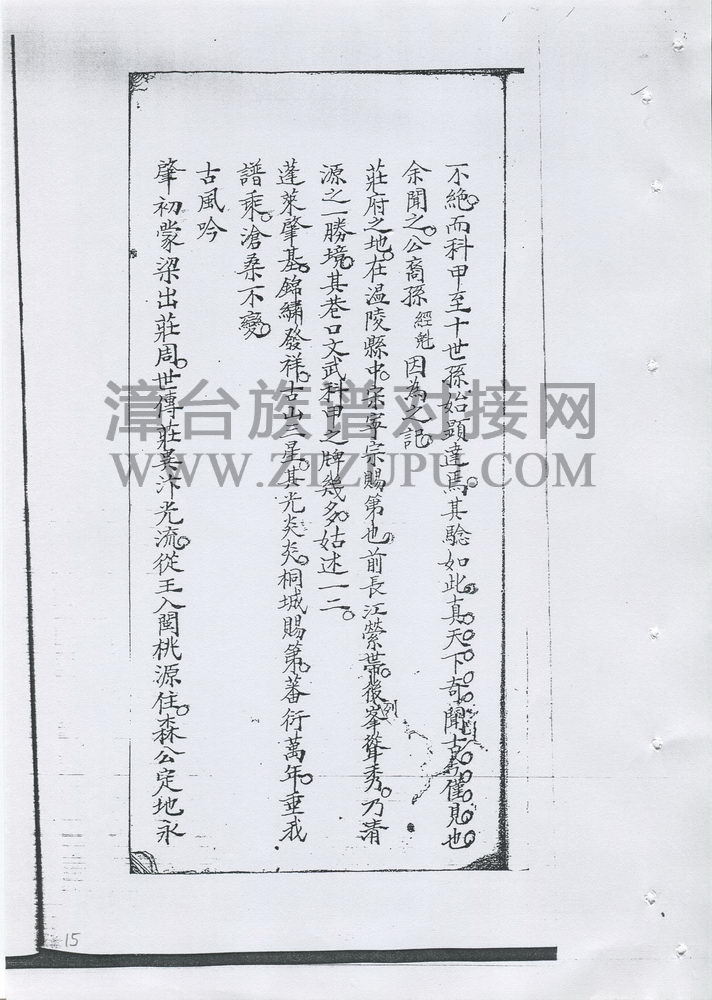 不絶而科甲至十世孫始顯達焉其驗如此真天下奇聞古為僅見也
余聞之公裔孫經魁因為之記
莊府之地在温陵縣中宋寧宗賜第也前長江縈帶後峯聳秀乃清
列
源之一勝境其巷口文武科甲之牌幾多姑述一二
蓬萊肇基錦繡發祥古山三星其光炎炎桐城賜第蕃衍萬年垂我
譜乘滄桑不變
古風吟
肇初蒙梁出莊周世傳莊吳汴光流從王入閩桃源住森公定地永
漳台族谱对接网
WWW.ZTZUPU.COM
15